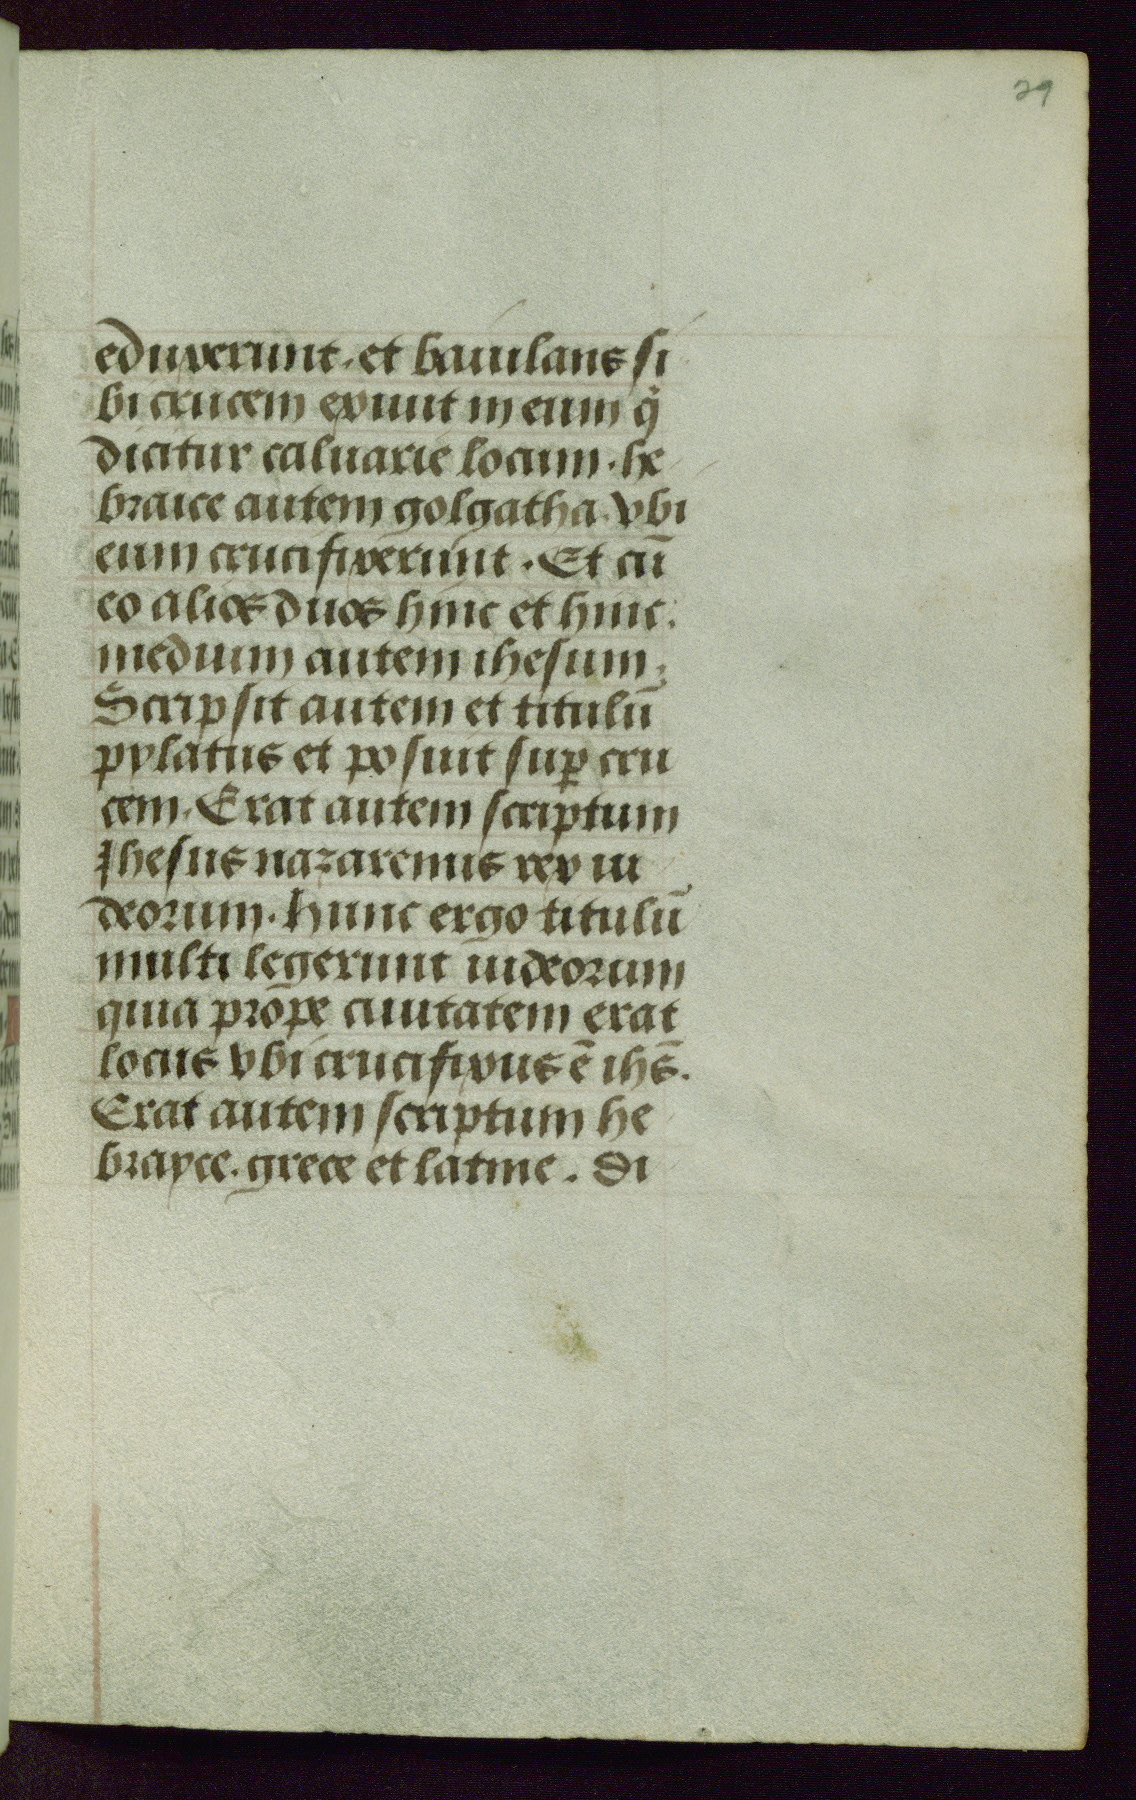 29
eduxerunt. et baiulans si
bi crucem exiuit in eum q̇
dicitur caluarie locum. he
braice autem golgatha. vbi
eum crucifixerunt. Et cū
eo alios duos hinc et hinc.
medium autem ihesum.
Scripsit autem et titulū
pylatus et posuit suꝑ cru
cem. Erat autem scriptum
Jhesus nazarenus rex iu
deorum. hunc ergo titulū
multi legerunt iudeorum
quia prope ciuitatem erat
locus vbi crucifixus ē ihs̄.
Erat autem scriptum he
brayce. grece et latine. Di